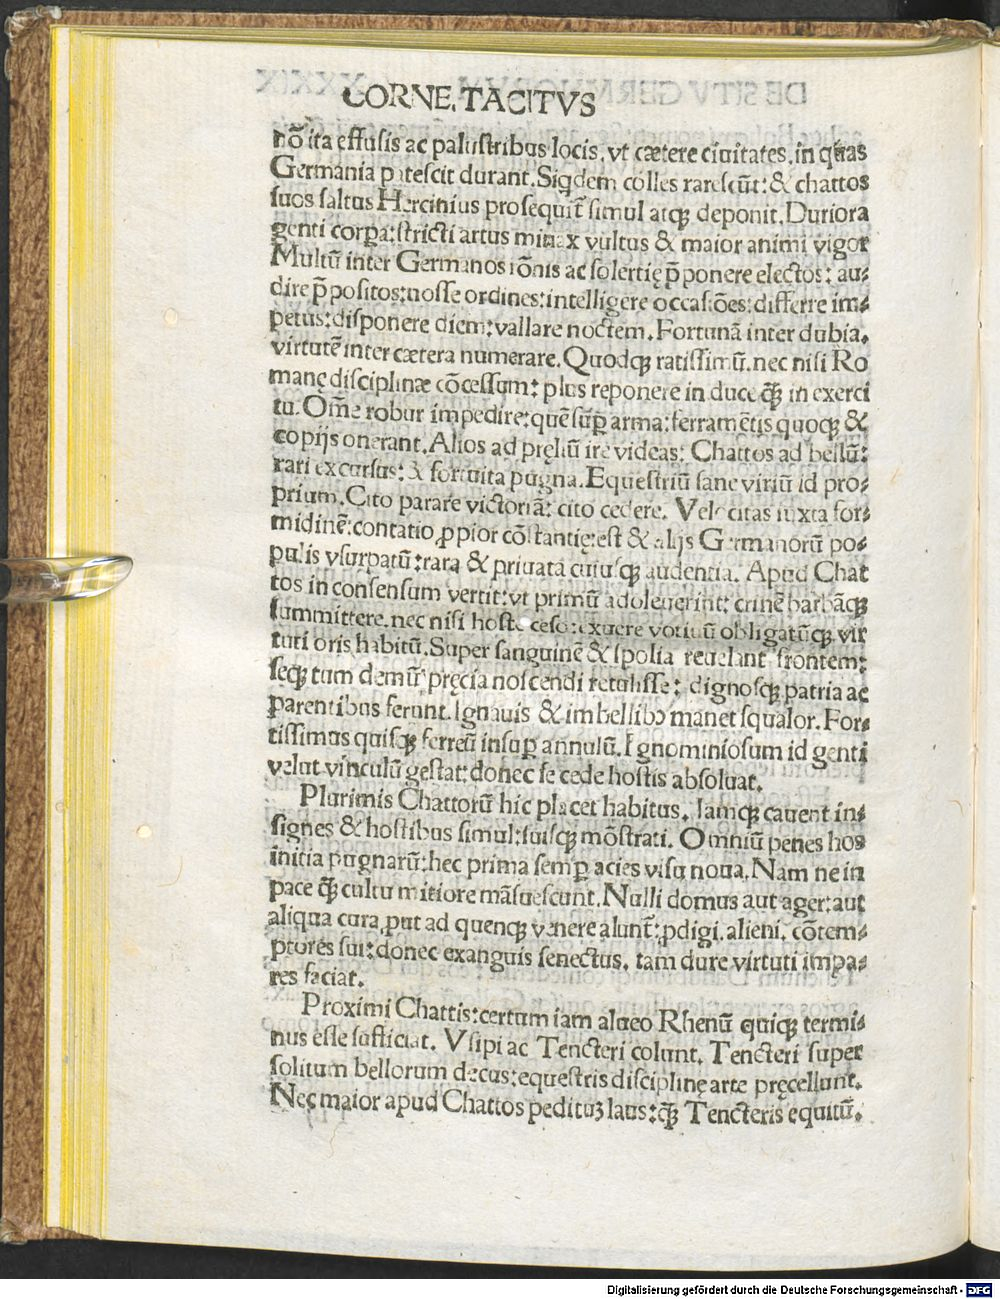 CORNE. TACITVS
nō ita effusis ac palustribus locis. vt cætere ciuitates. in quas
Germania patescit durant. Siqdem colles rarescūt: & chattos
suos saltus Hercinius prosequit̃ simul atqȝ deponit. Duriora
genti corpa: stricti artus minax vultus & maior animi vigor
Multū inter Germanos rōnis ac solertię p̄ponere electos: au⸗
dire p̄positos: nosse ordines: intelligere occasiões: differre im⸗
petus: disponere diem: vallare noctem. Fortunā inter dubia.
virtutē inter cætera numerare. Quodqȝ ratissimū. nec nisi Ro
manę disciplinæ cōcessum: plus reponere in duce q̄ȝ in exerci
tu. Om̄e robur impedire: quē sup arma: ferramētis quoqȝ &
copijs onerant. Alios ad pręliū ire videas: Chattos ad bellū:
rari excursus: & fortuita pugna. Equestriū sane viriū id pro⸗
prium. Cito parare victoriā: cito cedere. Velocitas iuxta for⸗
midinē: contatio ꝓpior cōstantię: est & alijs Germanorū po⸗
pulis vsurpatū: rara & priuata cuiusqȝ audentia. Apud Chat
tos in consensum vertit: vt primū adoleuerint: crinē barbāqȝ
summittere. nec nisi hoste ceso: exuere votiuū obligatūqȝ vir
tuti oris habitū. Super sanguinē & spolia reuelant frontem:
seqȝ tum demū pręcia noscendi retulisse: dignosqȝ patria ac
parentibus ferunt. Ignauis & imbellibɔ manet squalor. For⸗
tissimus quisqȝ ferreū insup annulū. Ignominiosum id genti
velut vinculū gestat: donec se cede hostis absoluat.
Plurimis Chattorū hic placet habitus. Iamqȝ cauent in⸗
signes & hostibus simul: suisqȝ mōstrati. Omniū penes hos
initia pugnarū: hec prima semp acies visu noua. Nam ne in
pace q̄ȝ cultu mitiore māsuescunt. Nulli domus aut ager: aut
aliqua cura, put ad quenqȝ venere alunt̃: ꝓdigi. alieni. cōtem⸗
ptores sui: donec exanguis senectus. tam dure virtuti impa⸗
res faciat.
Proximi Chattis: certum iam alueo Rhenū quiqȝ termi⸗
nus esse sufficiat. Vsipi ac Tencteri colunt. Tencteri super
solitum bellorum decus: equestris disciplinę arte pręcellunt.
Nec maior apud Chattos peditūȝ laus: q̄ȝ Tencteris equitū.
Digitalisierung gefördert durch die Deutsche Forschungsgemeinschaft - DFG